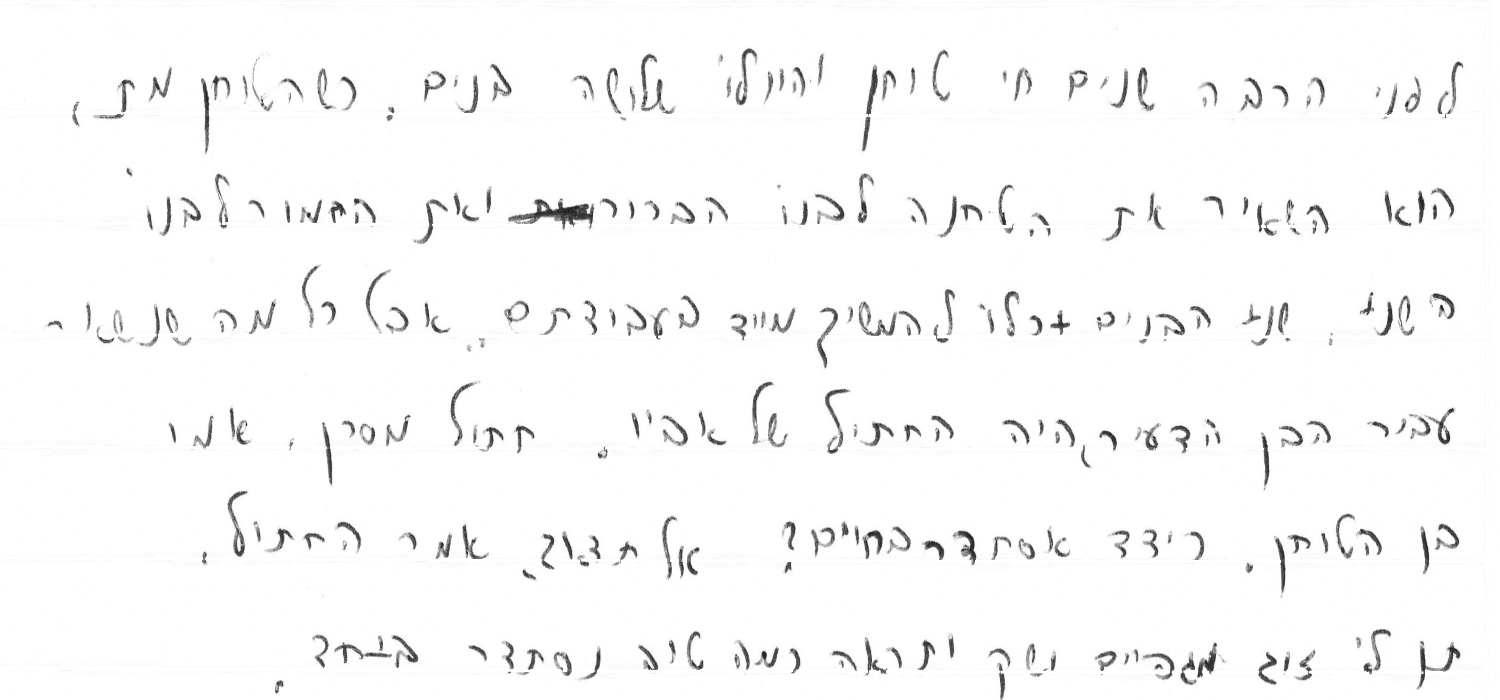 לפני הרבה שנים חי טוחן והיו לו שלושה בנים. כשהטוחן מת,
הוא השאיר את הטחנה לבנו הבכור ואת החמור לבנו
השני. שני הבנים יכלו להמשיך מייד בעבודתם. אבל כל מה שנשאר
עבור הבן הצעיר, היה החתול של אביו. חתול מסכן, אמר
בן הטוחן. כיצד אסתדר בחיים? אל תדאג, אמר החתול.
תן לי זוג מגפיים ושק ותראה כמה טוב נסתדר ביחד.